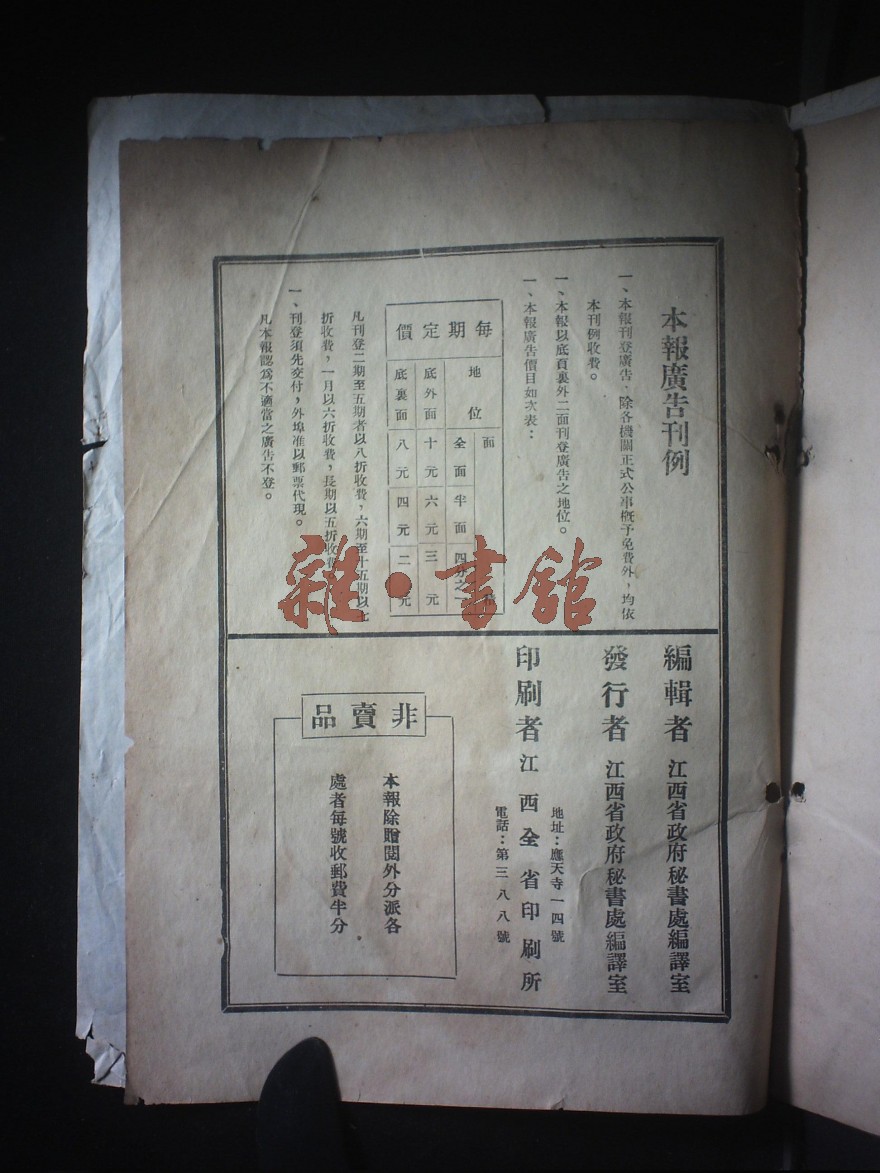 本報廣告刊例
一、本報刊登廣告，除各機關正式公事概予免費外，均依
本刊例收費。
一、本報以底頁裏外二面刊登廣告之地位。
一、本報廣告價目如次表：
每期定價
地位 面
全面 半面 四分之
底外面 十元 六元 三元
底裏面 八元 四元 二元
凡刊登二期至五期者以八折收費，六期至十五期以七
折收費，一月以六折收費，長期以五折收費
一、刊登須先交付，外埠准以郵票代現。
凡本報認為不適當之廣告不登。
編輯者 江西省政府秘書處編譯室
發行者 江西省政府秘書處編譯室
印刷者 江西全省印刷所
地址：應天寺一四號
電話：第三八八號
非賣品
本報除贈閱外分派各
處者每號收郵費半分
雜·書館